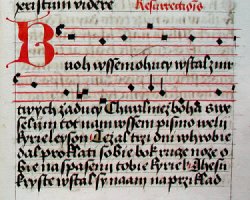 xpistum videre Resurrectiois
Buoh wssemohucy wstal zmr
twych zaducy Chwalmez boha swe
selim tot nam wssem pismo weli
kyrieleyson Lezal tri dni whrobie
dal proklati sobie bok ruce noze o
bie na spasenie tobie kyriel
kryste wstal sy naam naprziklad